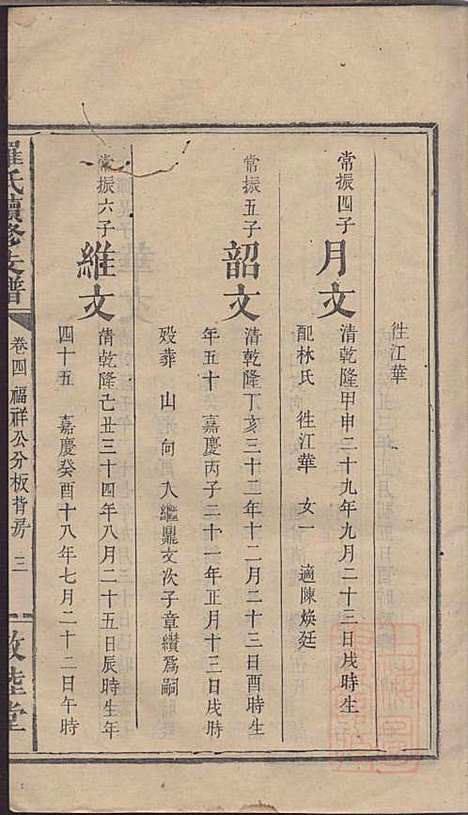 徃江華
常振四子
月文
清乾隆甲申二十九年九月二十三日戌時生
配林氏 徃江華 女一 適陳煥廷
常振五子
韶文
清乾隆丁亥三十二年十二月二十三日酉時生
年五十 嘉慶丙子二十一年正月十三日戌時
歿葬 山 向 入繼鼎文次子章纘爲嗣
常振六子
維文
清乾隆己丑三十四年八月二十五日辰時生年
四十五 嘉慶癸酉十八年七月二十二日午時
羅氏續修支譜
卷四 福祥公分板背房 三
敦睦堂